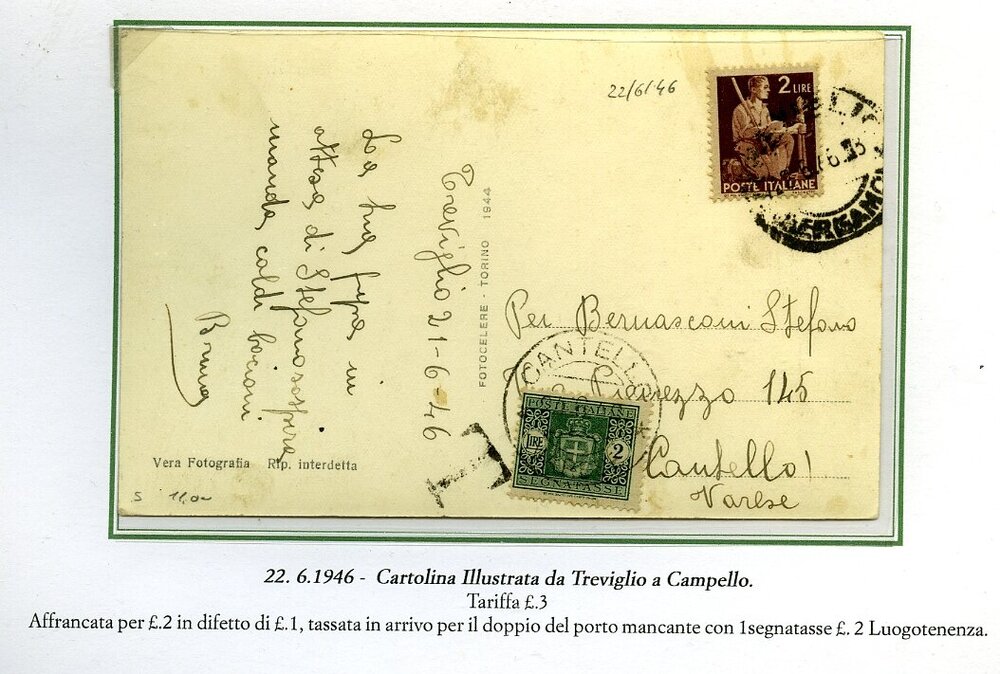 22/6/46
2 LIRE
POSTE ITALIANE
BERGAMO
La tua pupa in
attesa di Stefano sospira
manda caldi bacioni
Bruna
Treviglio 21-6-46
FOTOCELERE - TORINO 1944
Per Bernasconi Stefano
145
Cantello!
Varese
CANTELLO
T
POSTE ITALIANE
LIRE 2
SEGNATASSE
Vera Fotografia Rip. interdetta
S 11,00
22. 6.1946 - Cartolina Illustrata da Treviglio a Campello.
Tariffa £.3
Affrancata per £.2 in difetto di £.1, tassata in arrivo per il doppio del porto mancante con 1segnatasse £. 2 Luogotenenza.